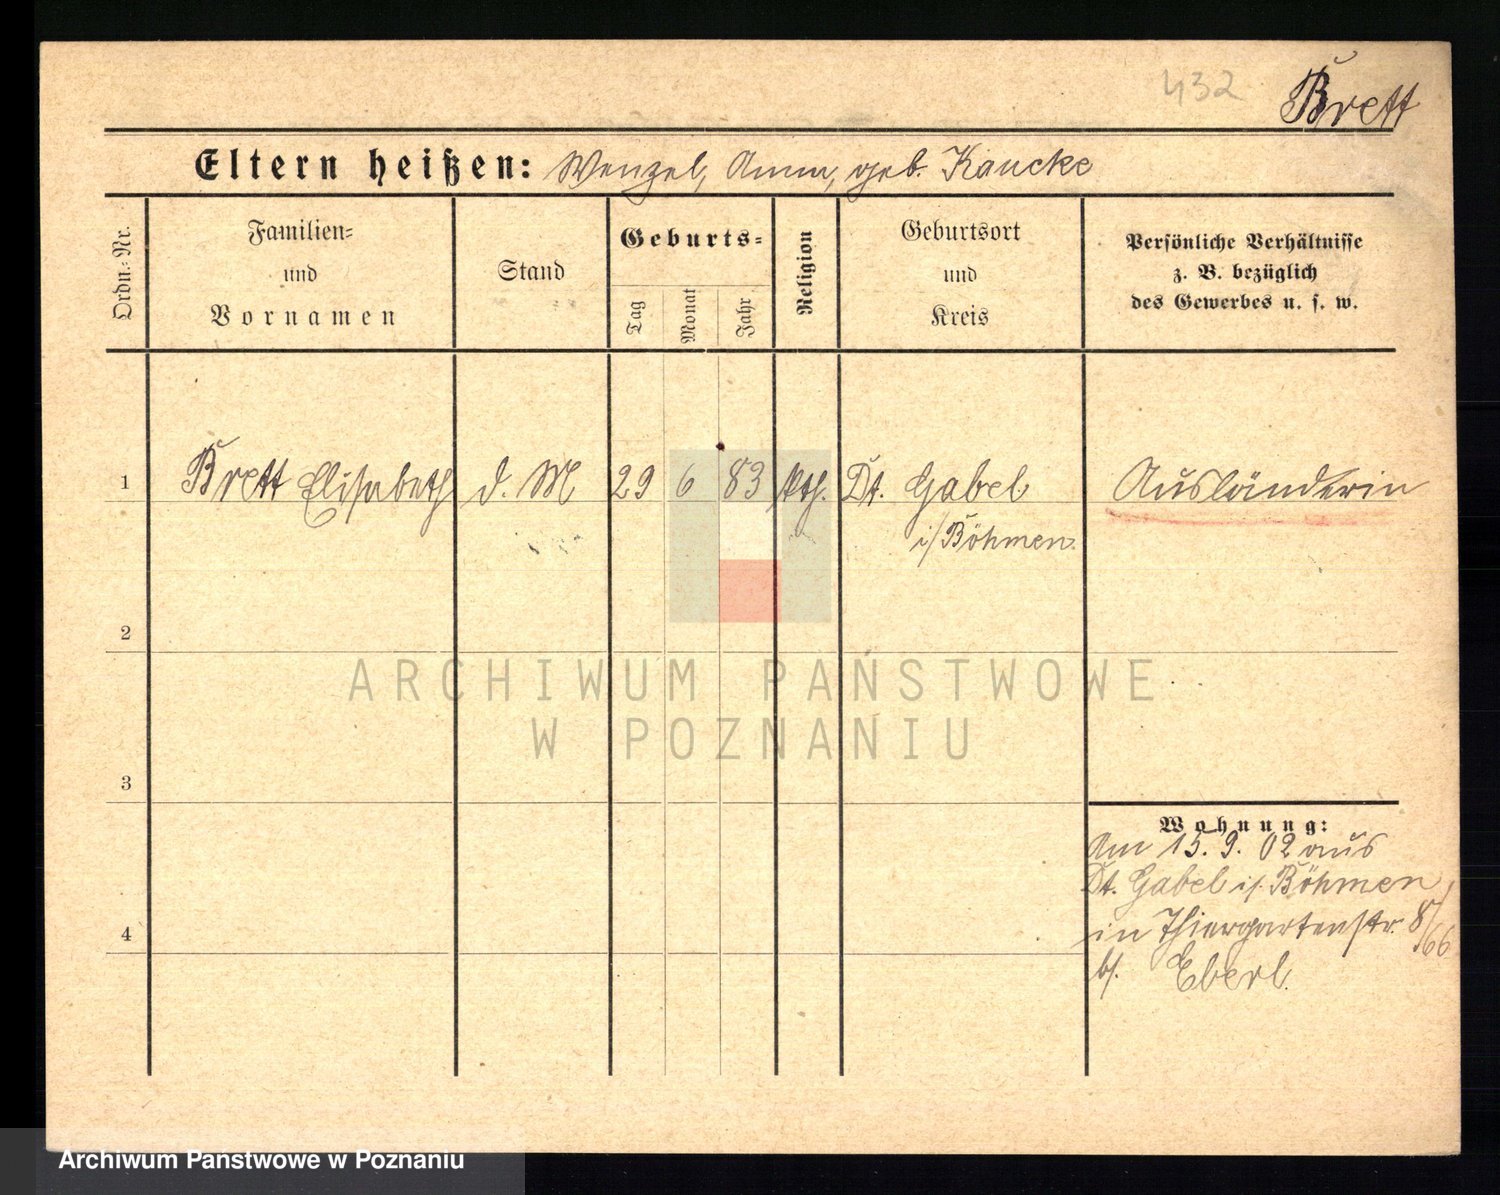 432 Brett
Eltern heißen: Wenzel, Anna, geb. Kaucke
Ordn.-Nr.
Familien-
und
Vornamen
Stand
Geburts-
Tag
Monat
Jahr
Religion
Geburtsort
und
Kreis
Persönliche Verhältnisse
z. B. bezüglich
des Gewerbes u. s. w.
1 Brett Elisabeth d. M 29 6 83 kth. Dt. Gabel Ausländerin
i/Böhmen.
2
ARCHIWUM PAŃSTWOWE
W POZNANIU
3
Wohnung:
Am 15. 9. 02 aus
Dt. Gabel i/. Böhmen
in Thiergartenstr. 8/66
4
b/. Eberl.
Archiwum Państwowe w Poznaniu